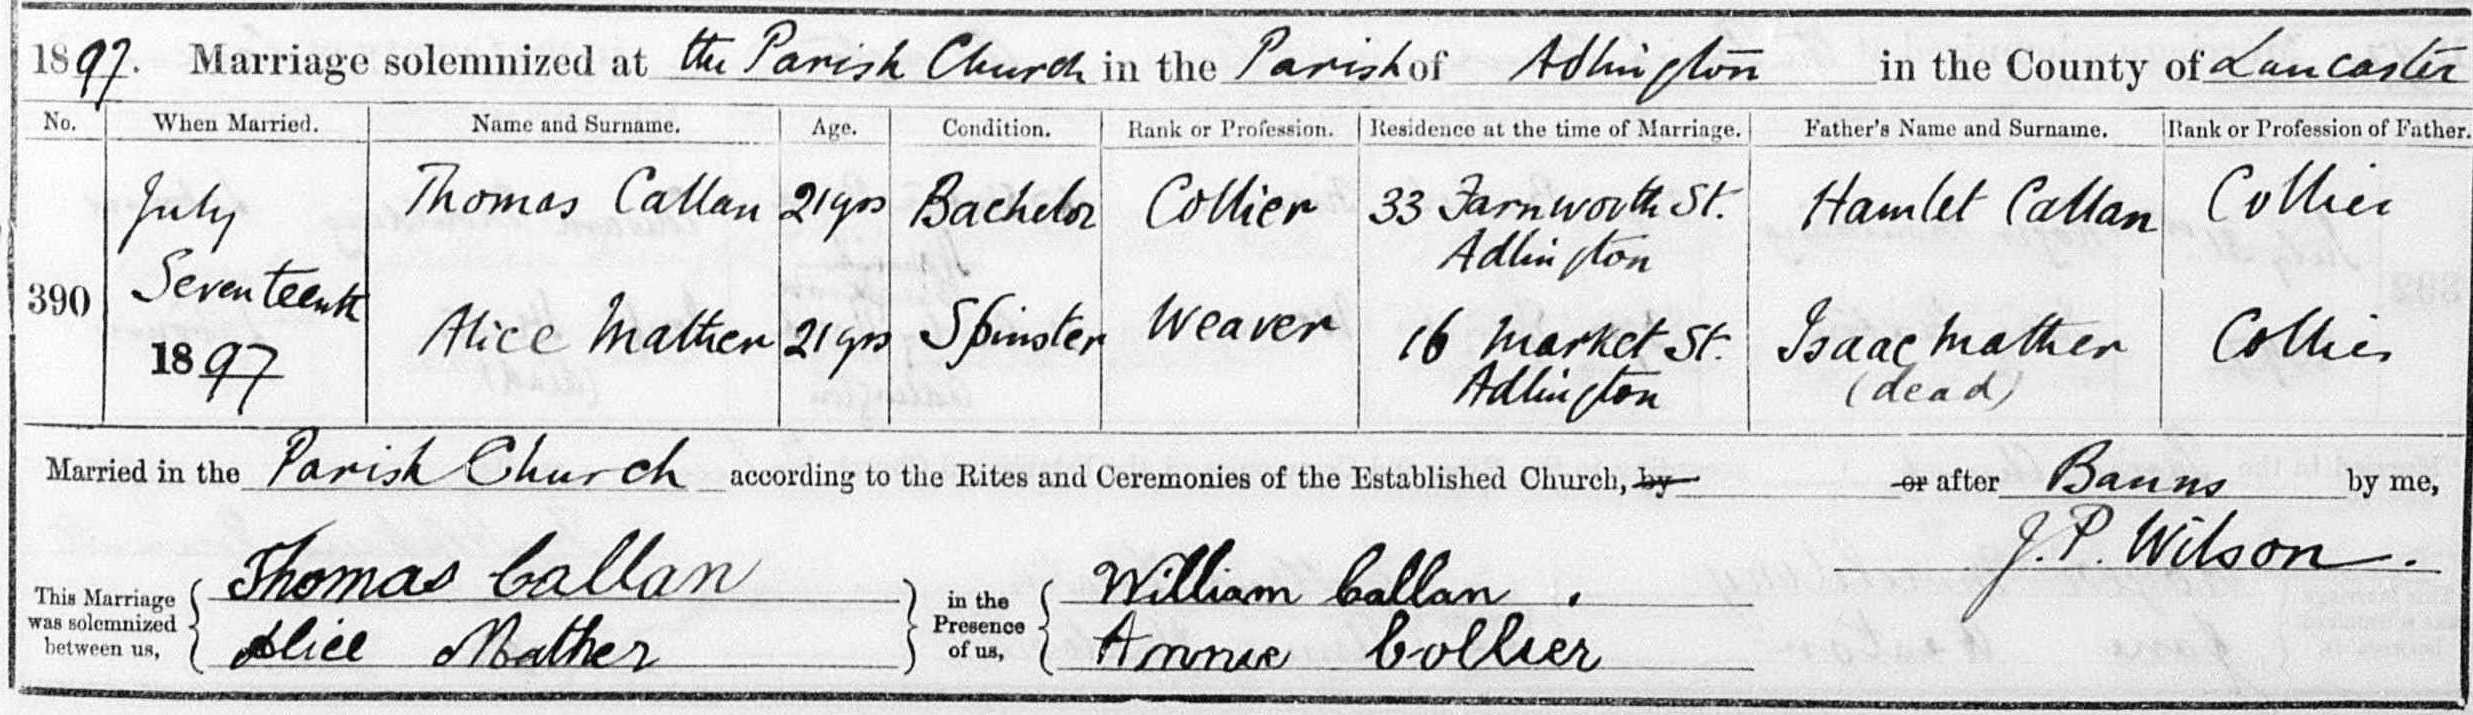 1897. Marriage solemnized at the Parish Church in the Parish of Adlington in the County of Lancaster
No. When Married. Name and Surname. Age. Condition. Rank or Profession. Residence at the time of Marriage. Father's Name and Surname. Rank or Profession of Father.
July Thomas Callan 21 yrs Bachelor Collier 33 Farnworth St. Hamlet Callan Collier
Adlington
390 Seventeenth
Alice Mather 21 yrs Spinster Weaver 16 Market St. Isaac Mather Collier
1897 Adlington (dead)
Married in the Parish Church according to the Rites and Ceremonies of the Established Church, by or after Banns by me,
J. P. Wilson.
This Marriage was solemnized between us,
Thomas Callan
Alice Mather
in the Presence of us,
William Callan.
Annie Collier